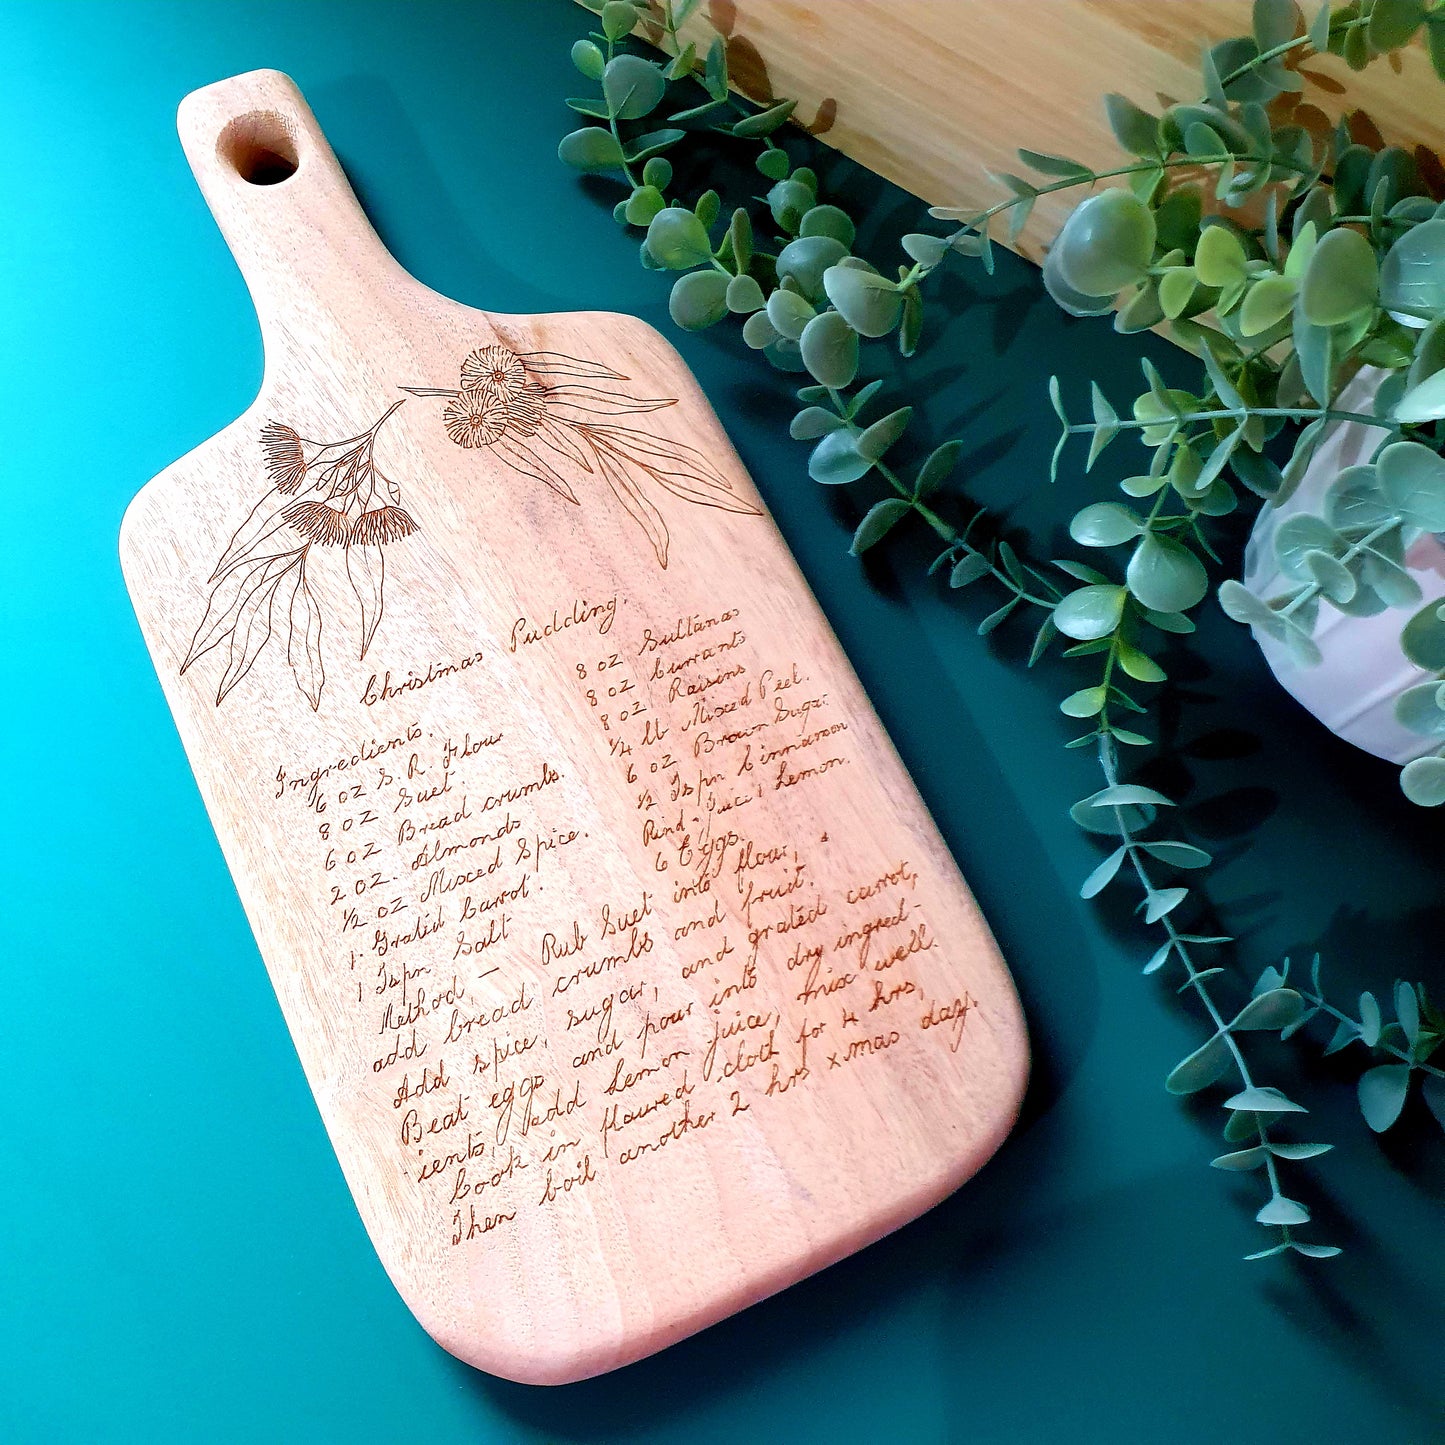 Christmas Pudding.
Ingredients.
6 oz S. R. Flour
8 oz Suet
6 oz Bread crumbs.
2 oz. Almonds
½ oz Mixed Spice.
1. Grated Carrot.
1 Tspn Salt
8 oz Sultanas
8 oz Currants
8 oz Raisins
¼ lb Mixed Peel.
6 oz Brown Sugar.
½ Tspn Cinnamon
Rind + Juice 1 Lemon.
6 Eggs.
Method, — Rub Suet into flour,
add bread crumbs and fruit.
Add spice, sugar, and grated carrot,
Beat eggs and pour into dry ingred-
ients, add Lemon juice, mix well.
Cook in floured cloth for 4 hrs,
Then boil another 2 hrs xmas day.